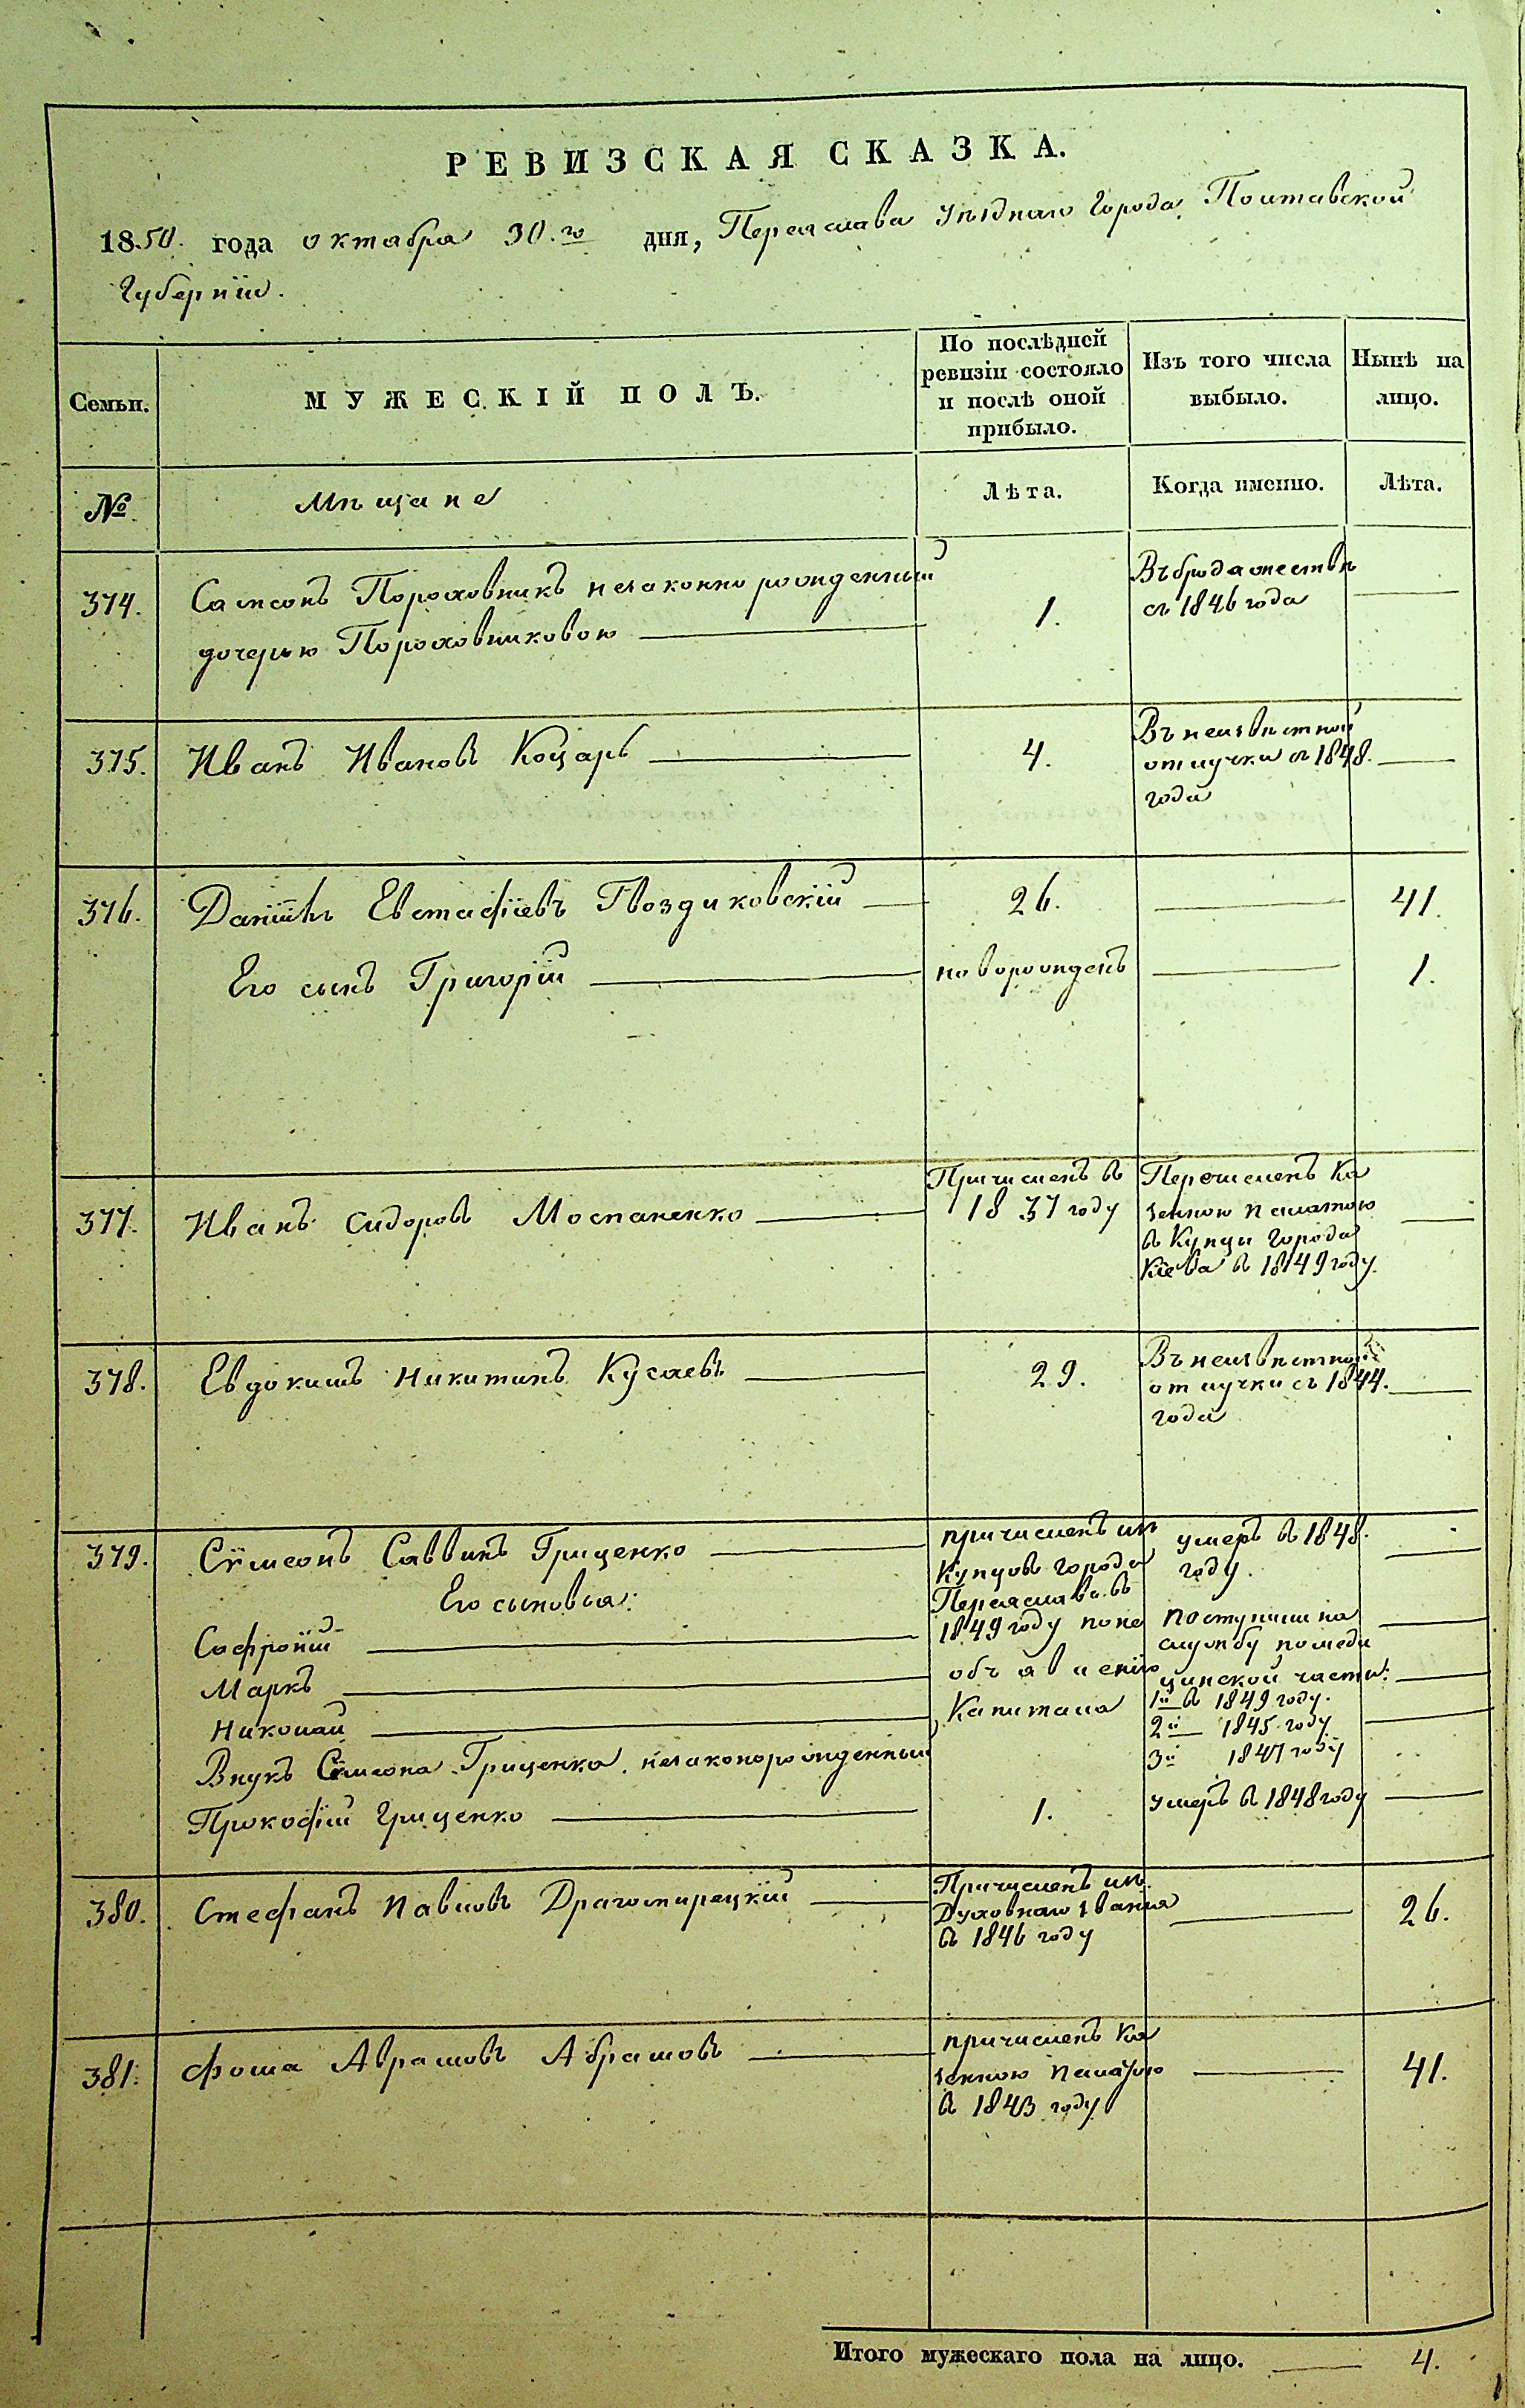 РЕВИЗСКАЯ СКАЗКА.
1850. года октабра 30.го дня, Переяслава уѣзднаго Города Полтавской
Губерніи.
Семьи.
МУЖЕСКІЙ ПОЛЪ.
По послѣдней
ревизіи состояло
и послѣ оной
прибыло.
Изъ того числа
выбыло.
Нынѣ на
лицо.
№
Мѣщане
Лѣта.
Когда именно.
Лѣта.
374.
Самсонъ Пороховникъ незаконно рожденный
дочерью Пороховниковою
1.
Въ бродяжествѣ
съ 1846 года
375.
Иванъ Ивановъ Коцарь
4.
Въ неизвѣстной
отлучки съ 1848.
года
376.
Даніилъ Евстафіевъ Гвоздиковскій
26.
41.
Его сынъ Григорій
новорожденъ
1.
377.
Иванъ Сидоровъ Моспаненко
Причисленъ въ
1837 году
Перечисленъ Ка
зенною палатою
въ Купци города
Кіева въ 1849 году.
378.
Евдокимъ Никитинъ Кусаевъ
29.
Въ неизвѣстной
отлучки съ 1844.
года
379.
Сѵмеонъ Саввинъ Гриценко
причисленъ изъ
Купцовъ города
Переяслава въ
1849 году по не
объявленію
Капитала
умеръ въ 1848.
году.
Его сыновья:
Софроній
Маркъ
Николай
поступили на
службу по меди
цинской части:
1й въ 1849 году.
2й 1845 году
3й 1847 году
Внукъ Сѵмеона Гриценка, незаконорожденный
Прокофій Гриценко
1.
умеръ въ 1848 году
380.
Стефанъ Павловъ Драгомирецкій
Причисленъ изъ
Духовнаго званія
въ 1846 году
26.
381.
Фома Аврамовъ Абрамовъ
причисленъ Ка
зенною палатою
въ 1843 году
41.
Итого мужескаго пола на лицо.
4.